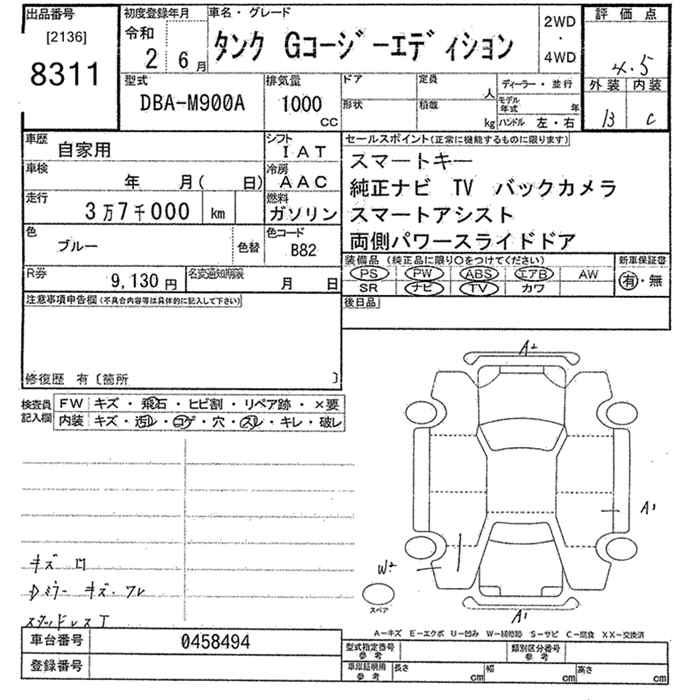 出品番号
[2136]
8311
初度登録年月
令和
2 6月
車名・グレード
タンク Gコージーエディション
2WD
・
4WD
評価点
4.5
外装 内装
B C
型式
DBA-M900A
排気量
1000
CC
ドア
定員
人
形状
積載
kg
ディーラー・並行
モデル年式 年
ハンドル 左・右
車歴
自家用
シフト
IAT
車検
年 月( 日)
冷房
AAC
走行
3万7千000 km
燃料
ガソリン
色
ブルー
色替
色コード
B82
R券
9,130円
名変通知期限
月 日
セールスポイント(正常に機能するものに限ります)
スマートキー
純正ナビ TV バックカメラ
スマートアシスト
両側パワースライドドア
装備品(純正品に限り○をつけてください)
PS PW ABS エアB AW
SR ナビ TV カワ
新車保証書
有・無
後日品
注意事項申告欄(不具合内容等は具体的に記入して下さい)
修復歴 有〔箇所 〕
検査員記入欄
FW キズ・飛石・ヒビ割・リペア跡・×要
内装 キズ・汚レ・コゲ・穴・スレ・キレ・破レ
キズ
ミラー キズ・スレ
A2
A1
W2
A1
スペア
A−キズ E−エクボ U−凹み W−補修跡 S−サビ C−腐食 XX−交換済
車台番号
0458494
登録番号
型式指定番号
参考
類別区分番号
参考
車庫証明用
参考
長さ cm
幅 cm
高さ cm